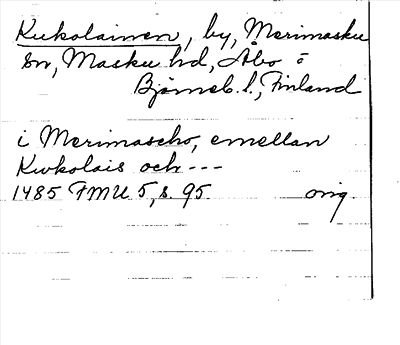 Kukolainen, by, Merimasku
sn, Masku hd, Åbo o
Björneb. l., Finland
i Merimascho, emellan
Kwkolais och ---
1485 FMU 5, s. 95 orig.